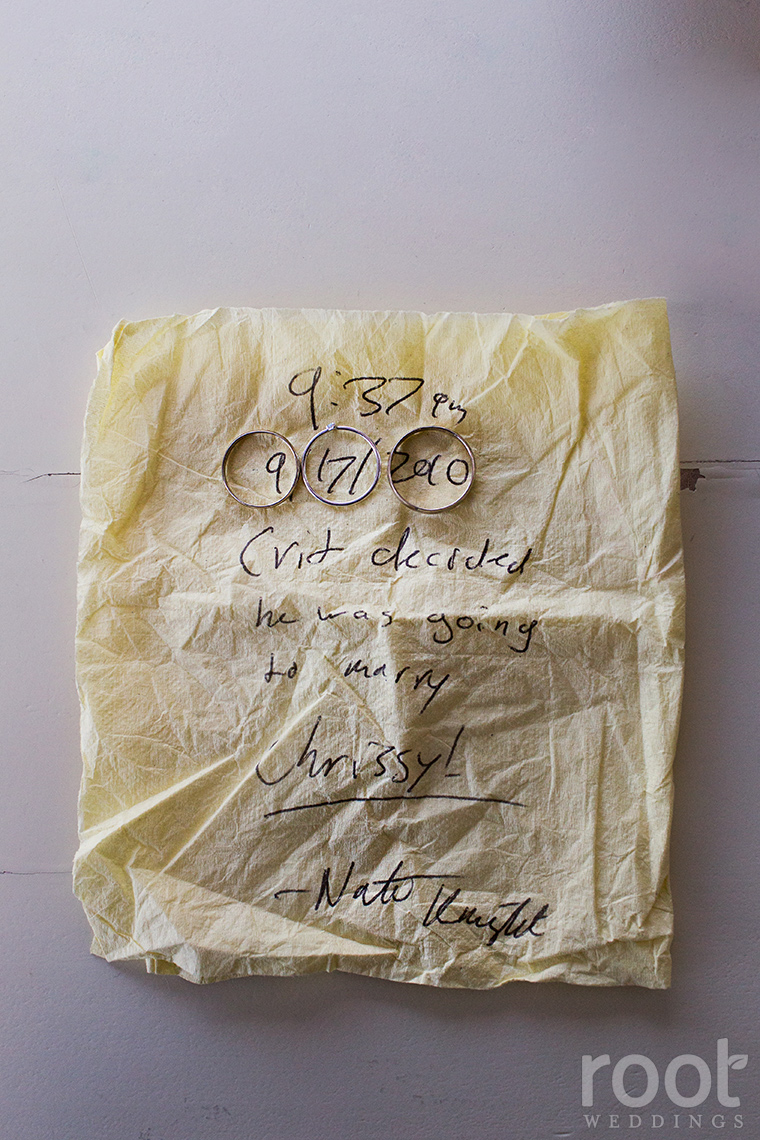 9:37 pm
9/17/2010
Crit decided
he was going
to marry
Chrissy!
- Nate Knight
root
WEDDINGS